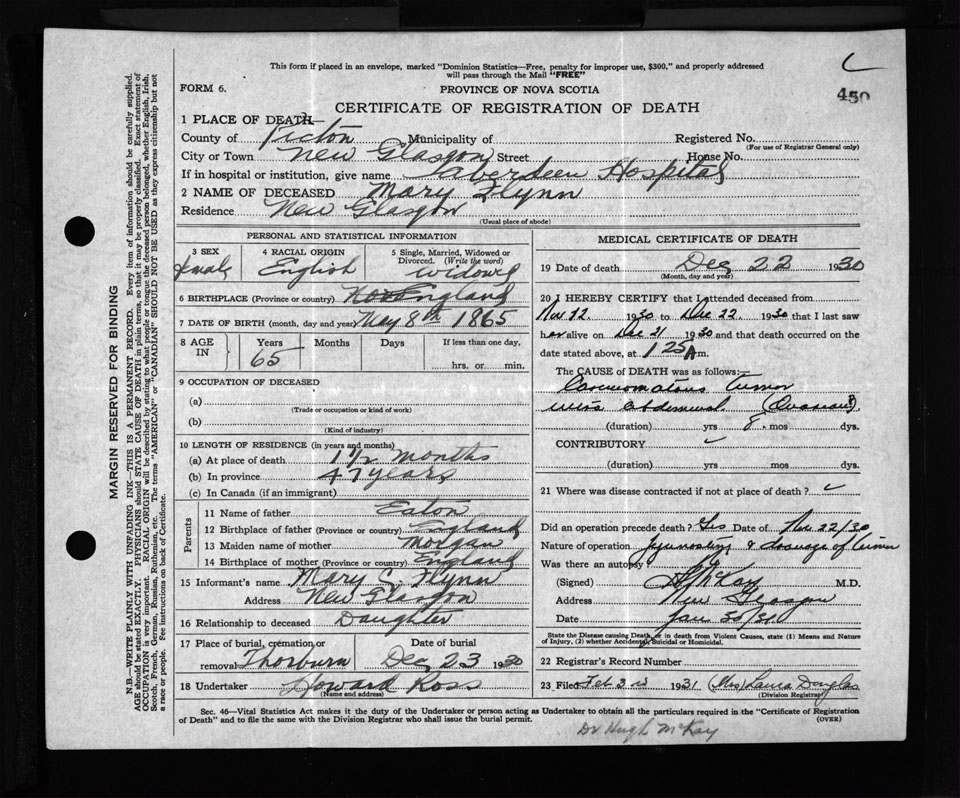 This form if placed in an envelope, marked "Dominion Statistics—Free, penalty for improper use, $300," and properly addressed
will pass through the Mail "FREE"
FORM 6.
PROVINCE OF NOVA SCOTIA
450
CERTIFICATE OF REGISTRATION OF DEATH
1 PLACE OF DEATH—
County of Pictou Municipality of Registered No.
(For use of Registrar General only)
City or Town New Glasgow Street House No.
If in hospital or institution, give name Aberdeen Hospital
2 NAME OF DECEASED Mary Flynn
Residence New Glasgow
(Usual place of abode)
PERSONAL AND STATISTICAL INFORMATION
3 SEX
Female
4 RACIAL ORIGIN
English
5 Single, Married, Widowed or
Divorced. (Write the word)
widowed
6 BIRTHPLACE (Province or country) England
7 DATE OF BIRTH (month, day and year) May 8th 1865
8 AGE IN
Years Months Days If less than one day,
65 hrs. or min.
9 OCCUPATION OF DECEASED
(a)
(Trade or occupation or kind of work)
(b)
(Kind of industry)
10 LENGTH OF RESIDENCE (in years and months)
(a) At place of death 1 1/2 months
(b) In province 47 years
(c) In Canada (if an immigrant)
Parents
11 Name of father Eaton
12 Birthplace of father (Province or country) England
13 Maiden name of mother Morgan
14 Birthplace of mother (Province or country) England
15 Informant's name Mary C. Flynn
Address New Glasgow
16 Relationship to deceased Daughter
17 Place of burial, cremation, or
removal Thorburn
Date of burial
Dec 23 1930
18 Undertaker Howard Ross
(Name and address)
MEDICAL CERTIFICATE OF DEATH
19 Date of death Dec 22 1930
(Month, day and year)
20 I HEREBY CERTIFY that I attended deceased from
Nov 12. 1930 to Dec 22. 1930 that I last saw
her alive on Dec 21 1930 and that death occurred on the
date stated above, at 1 25 A m.
The CAUSE OF DEATH was as follows:
Carcinomatous Tumor
abdominal. (Ovarian)
(duration) yrs 8 mos dys.
CONTRIBUTORY
(duration) yrs mos dys.
21 Where was disease contracted if not at place of death?
Did an operation precede death? Yes Date of Nov 22/30
Nature of operation & drainage of Tumor
Was there an autopsy
(Signed) McKay M.D.
Address New Glasgow
Date Jan 30/31
State the Disease causing Death, or in death from Violent Causes, state (1) Means and Nature
of Injury, (2) whether Accidental, Suicidal or Homicidal.
22 Registrar's Record Number
23 Filed Feb 3rd 1931 (Mrs) Laura Douglas
(Division Registrar)
Sec. 46—Vital Statistics Act makes it the duty of the Undertaker or person acting as Undertaker to obtain all the particulars required in the "Certificate of Registration
of Death" and to file the same with the Division Registrar who shall issue the burial permit.
(OVER)
Dr Hugh McKay
MARGIN RESERVED FOR BINDING
N.B.—WRITE PLAINLY WITH UNFADING INK—THIS IS A PERMANENT RECORD. Every item of information should be carefully supplied.
AGE should be stated EXACTLY. PHYSICIANS should STATE CAUSE OF DEATH in plain terms, so that it may be properly classified. Exact statement of
OCCUPATION is very important. RACIAL ORIGIN will be described by stating to what people or tongue the deceased person belonged, whether English, Irish,
Scotch, French, German, Russian, Ruthenian, etc. The terms "AMERICAN" or "CANADIAN" SHOULD NOT BE USED as they express citizenship but not
a race or people. Fee instructions on back of Certificate.